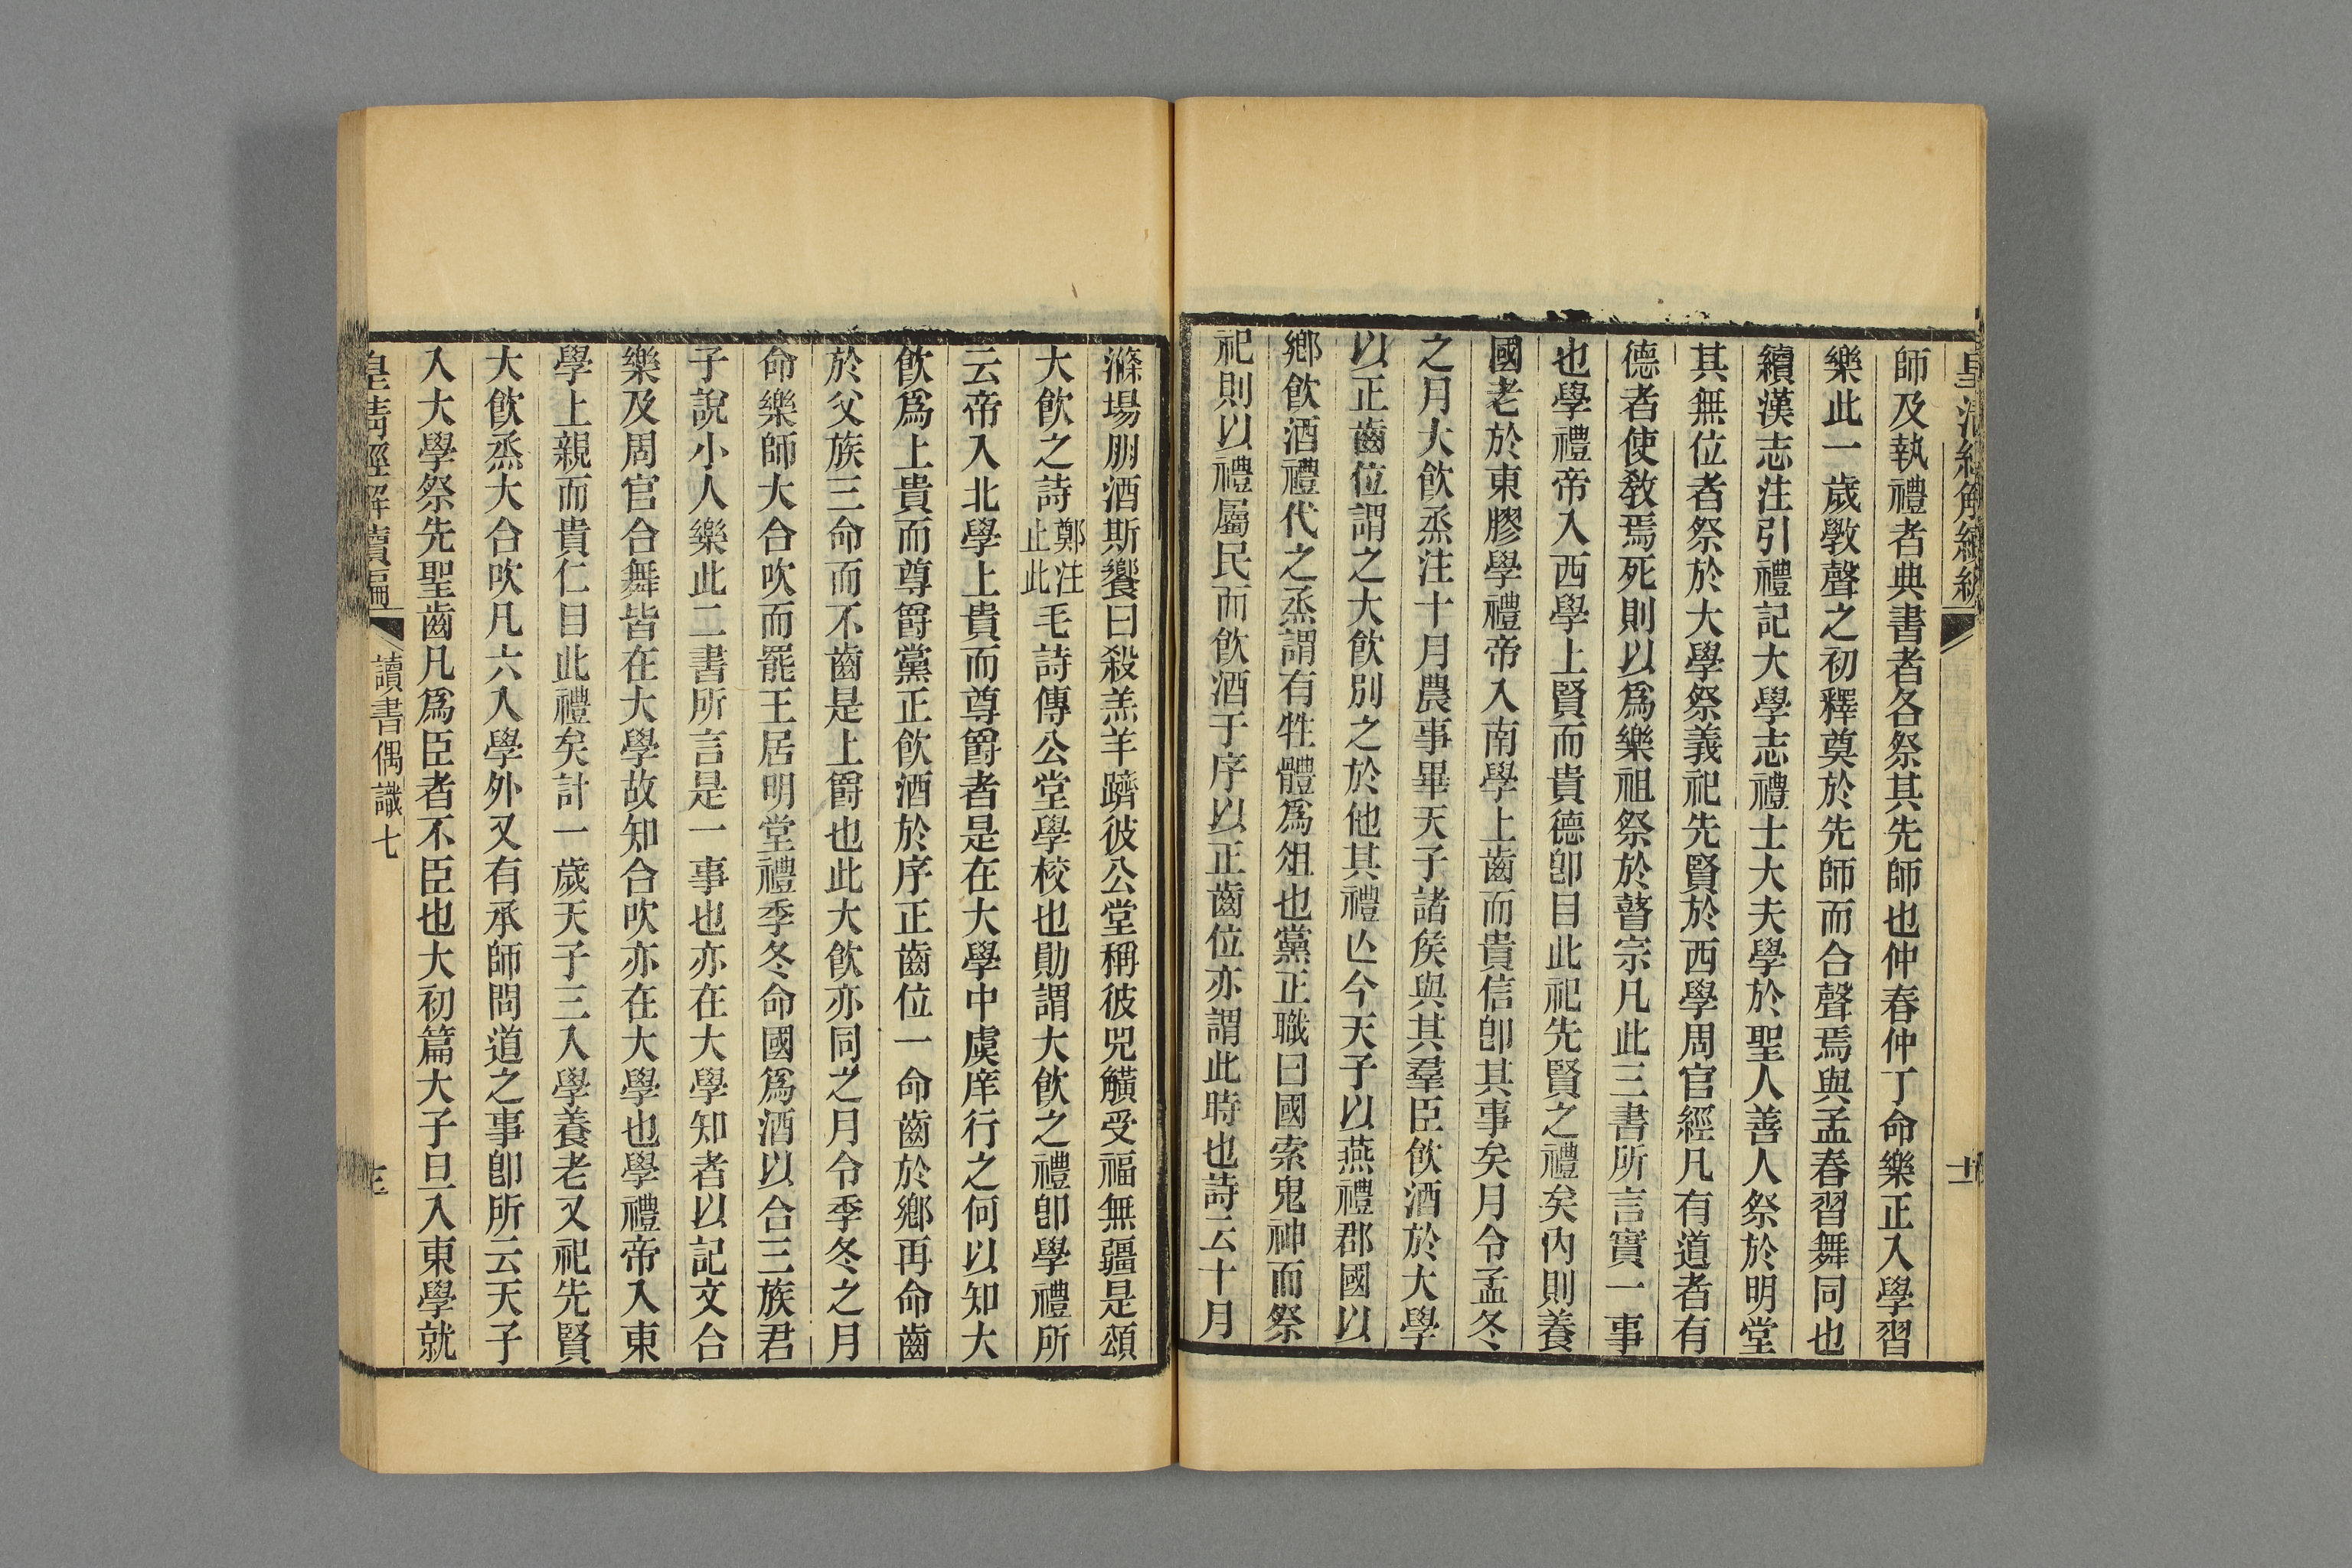 師及執禮者典書者各祭其先師也仲春仲丁命樂正入學習
樂此一歲敎聲之初釋奠於先師而合聲焉與孟春習舞同也
續漢志注引禮記大學志禮士大夫學於聖人善人祭於明堂
其無位者祭於大學祭義祀先賢於西學周官經凡有道者有
德者使敎焉死則以爲樂祖祭於瞽宗凡此三書所言實一事
也學禮帝入西學上賢而貴德卽目此祀先賢之禮矣內則養
國老於東膠學禮帝入南學上齒而貴信卽其事矣月令孟冬
之月大飮烝注十月農事畢天子諸矦與其羣臣飮酒於大學
以正齒位謂之大飮別之於他其禮亾今天子以燕禮郡國以
鄉飮酒禮代之烝謂有牲體爲俎也黨正職曰國索鬼神而祭
祀則以禮屬民而飮酒于序以正齒位亦謂此時也詩云十月
滌場朋酒斯饗曰殺羔羊躋彼公堂稱彼兕觵受福無疆是頌
大飮之詩鄭注止此毛詩傳公堂學校也勛謂大飮之禮卽學禮所
云帝入北學上貴而尊爵者是在大學中虞庠行之何以知大
飮爲上貴而尊爵黨正飮酒於序正齒位一命齒於鄉再命齒
於父族三命而不齒是上爵也此大飮亦同之月令季冬之月
命樂師大合吹而罷王居明堂禮季冬命國爲酒以合三族君
子說小人樂此二書所言是一事也亦在大學知者以記文合
樂及周官合舞皆在大學故知合吹亦在大學也學禮帝入東
學上親而貴仁目此禮矣計一歲天子三入學養老又祀先賢
大飮烝大合吹凡六入學外又有承師問道之事卽所云天子
入大學祭先聖齒凡爲臣者不臣也大初篇大子旦入東學就
皇淸經解續編
讀書偶識七